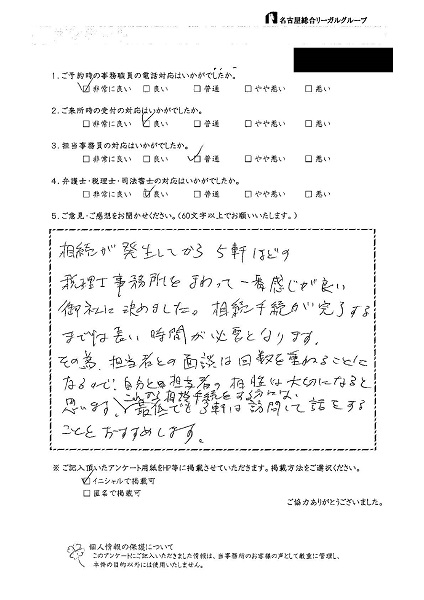 名古屋総合リーガルグループ
1. ご予約時の事務職員の電話対応はいかがでしたか。
☑非常に良い □良い □普通 □やや悪い □悪い
2. ご来所時の受付の対応はいかがでしたか。
□非常に良い ☑良い □普通 □やや悪い □悪い
3. 担当事務員の対応はいかがでしたか。
□非常に良い □良い ☑普通 □やや悪い □悪い
4. 弁護士・税理士・司法書士の対応はいかがでしたか。
□非常に良い ☑良い □普通 □やや悪い □悪い
5. ご意見・ご感想をお聞かせください。(60文字以上でお願いいたします。)
相続が発生してから 5軒ほどの
税理士事務所をまわって一番感じが良い
御社に決めました。相続手続が完了する
までは長い時間が必要となります。
その為、担当者との面談は回数を重ねることに
なるので、自分と担当者の相性は大切になると
思います。これから相続手続をする方には
最低でも3軒は訪問して話をする
ことをおすすめします。
※ ご記入頂いたアンケート用紙をHP等に掲載させていただきます。掲載方法をご選択ください。
☑イニシャルで掲載可
□匿名で掲載可
ご協力ありがとうございました。
個人情報の保護について
このアンケートにご記入いただきました情報は、当事務所のお客様の声として厳重に管理し、
本件の目的以外には使用いたしません。